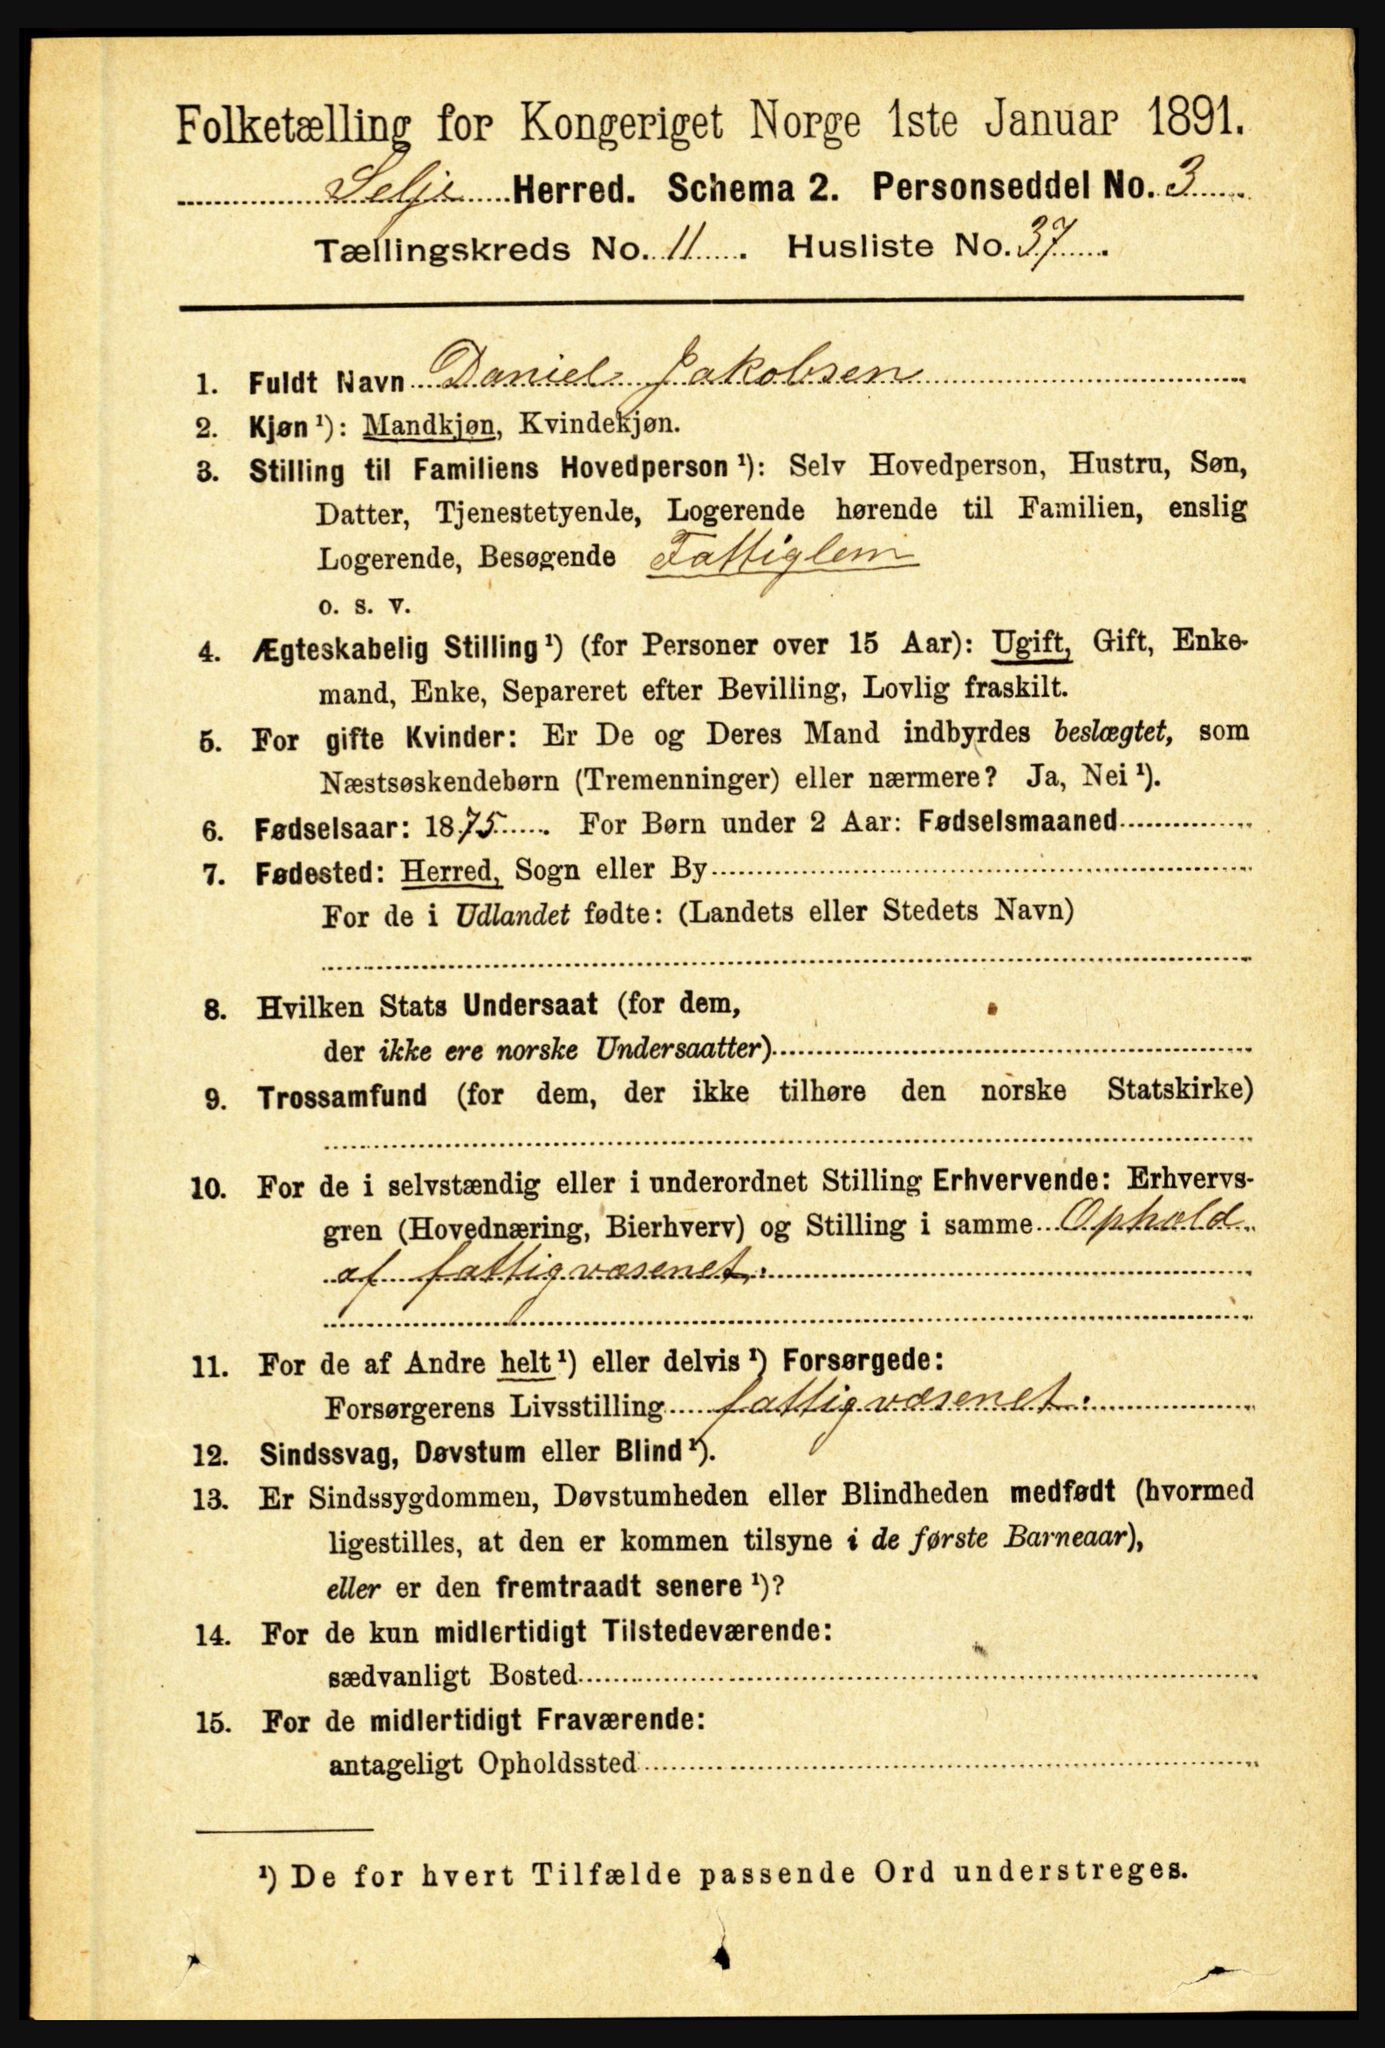 Folketælling for Kongeriget Norge 1ste Januar 1891.
Selje Herred. Schema 2. Personseddel No. 3
Tællingskreds No. 11. Husliste No. 37.
1. Fuldt Navn Daniel Jakobsen
2. Kjøn ¹): Mandkjøn, Kvindekjøn.
3. Stilling til Familiens Hovedperson ¹): Selv Hovedperson, Hustru, Søn,
Datter, Tjenestetyende, Logerende hørende til Familien, enslig
Logerende, Besøgende Fattiglem
o. s. v.
4. Ægteskabelig Stilling ¹) (for Personer over 15 Aar): Ugift, Gift, Enke-
mand, Enke, Separeret efter Bevilling, Lovlig fraskilt.
5. For gifte Kvinder: Er De og Deres Mand indbyrdes beslægtet, som
Næstsøskendebørn (Tremenninger) eller nærmere? Ja, Nei ¹).
6. Fødselsaar: 1875. For Børn under 2 Aar: Fødselsmaaned
7. Fødested: Herred, Sogn eller By
For de i Udlandet fødte: (Landets eller Stedets Navn)
8. Hvilken Stats Undersaat (for dem,
der ikke ere norske Undersaatter)
9. Trossamfund (for dem, der ikke tilhøre den norske Statskirke)
10. For de i selvstændig eller i underordnet Stilling Erhvervende: Erhvervs-
gren (Hovednæring, Bierhverv) og Stilling i samme Ophold
af fattigvæsenet.
11. For de af Andre helt ¹) eller delvis ¹) Forsørgede:
Forsørgerens Livsstilling fattigvæsenet.
12. Sindssvag, Døvstum eller Blind ¹).
13. Er Sindssygdommen, Døvstumheden eller Blindheden medfødt (hvormed
ligestilles, at den er kommen tilsyne i de første Barneaar),
eller er den fremtraadt senere ¹)?
14. For de kun midlertidigt Tilstedeværende:
sædvanligt Bosted
15. For de midlertidigt Fraværende:
antageligt Opholdssted
¹) De for hvert Tilfælde passende Ord understreges.